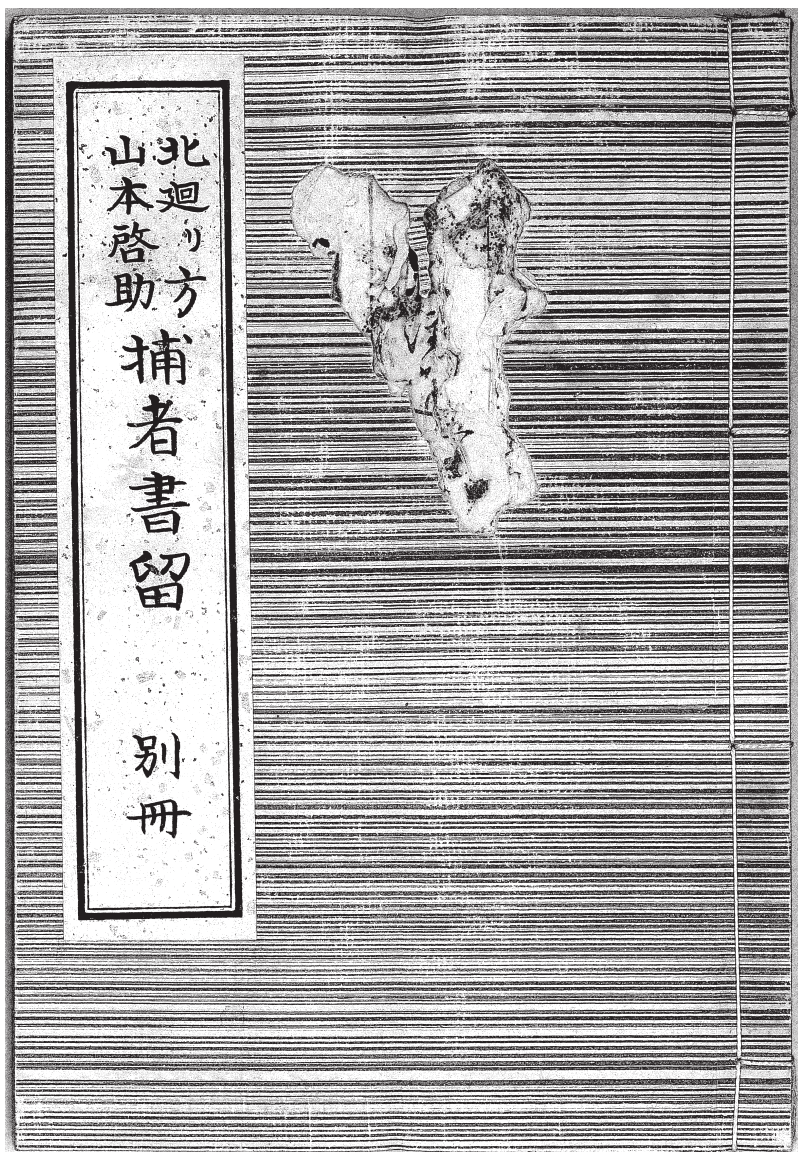 北廻り方
山本啓助
捕者書留
別冊